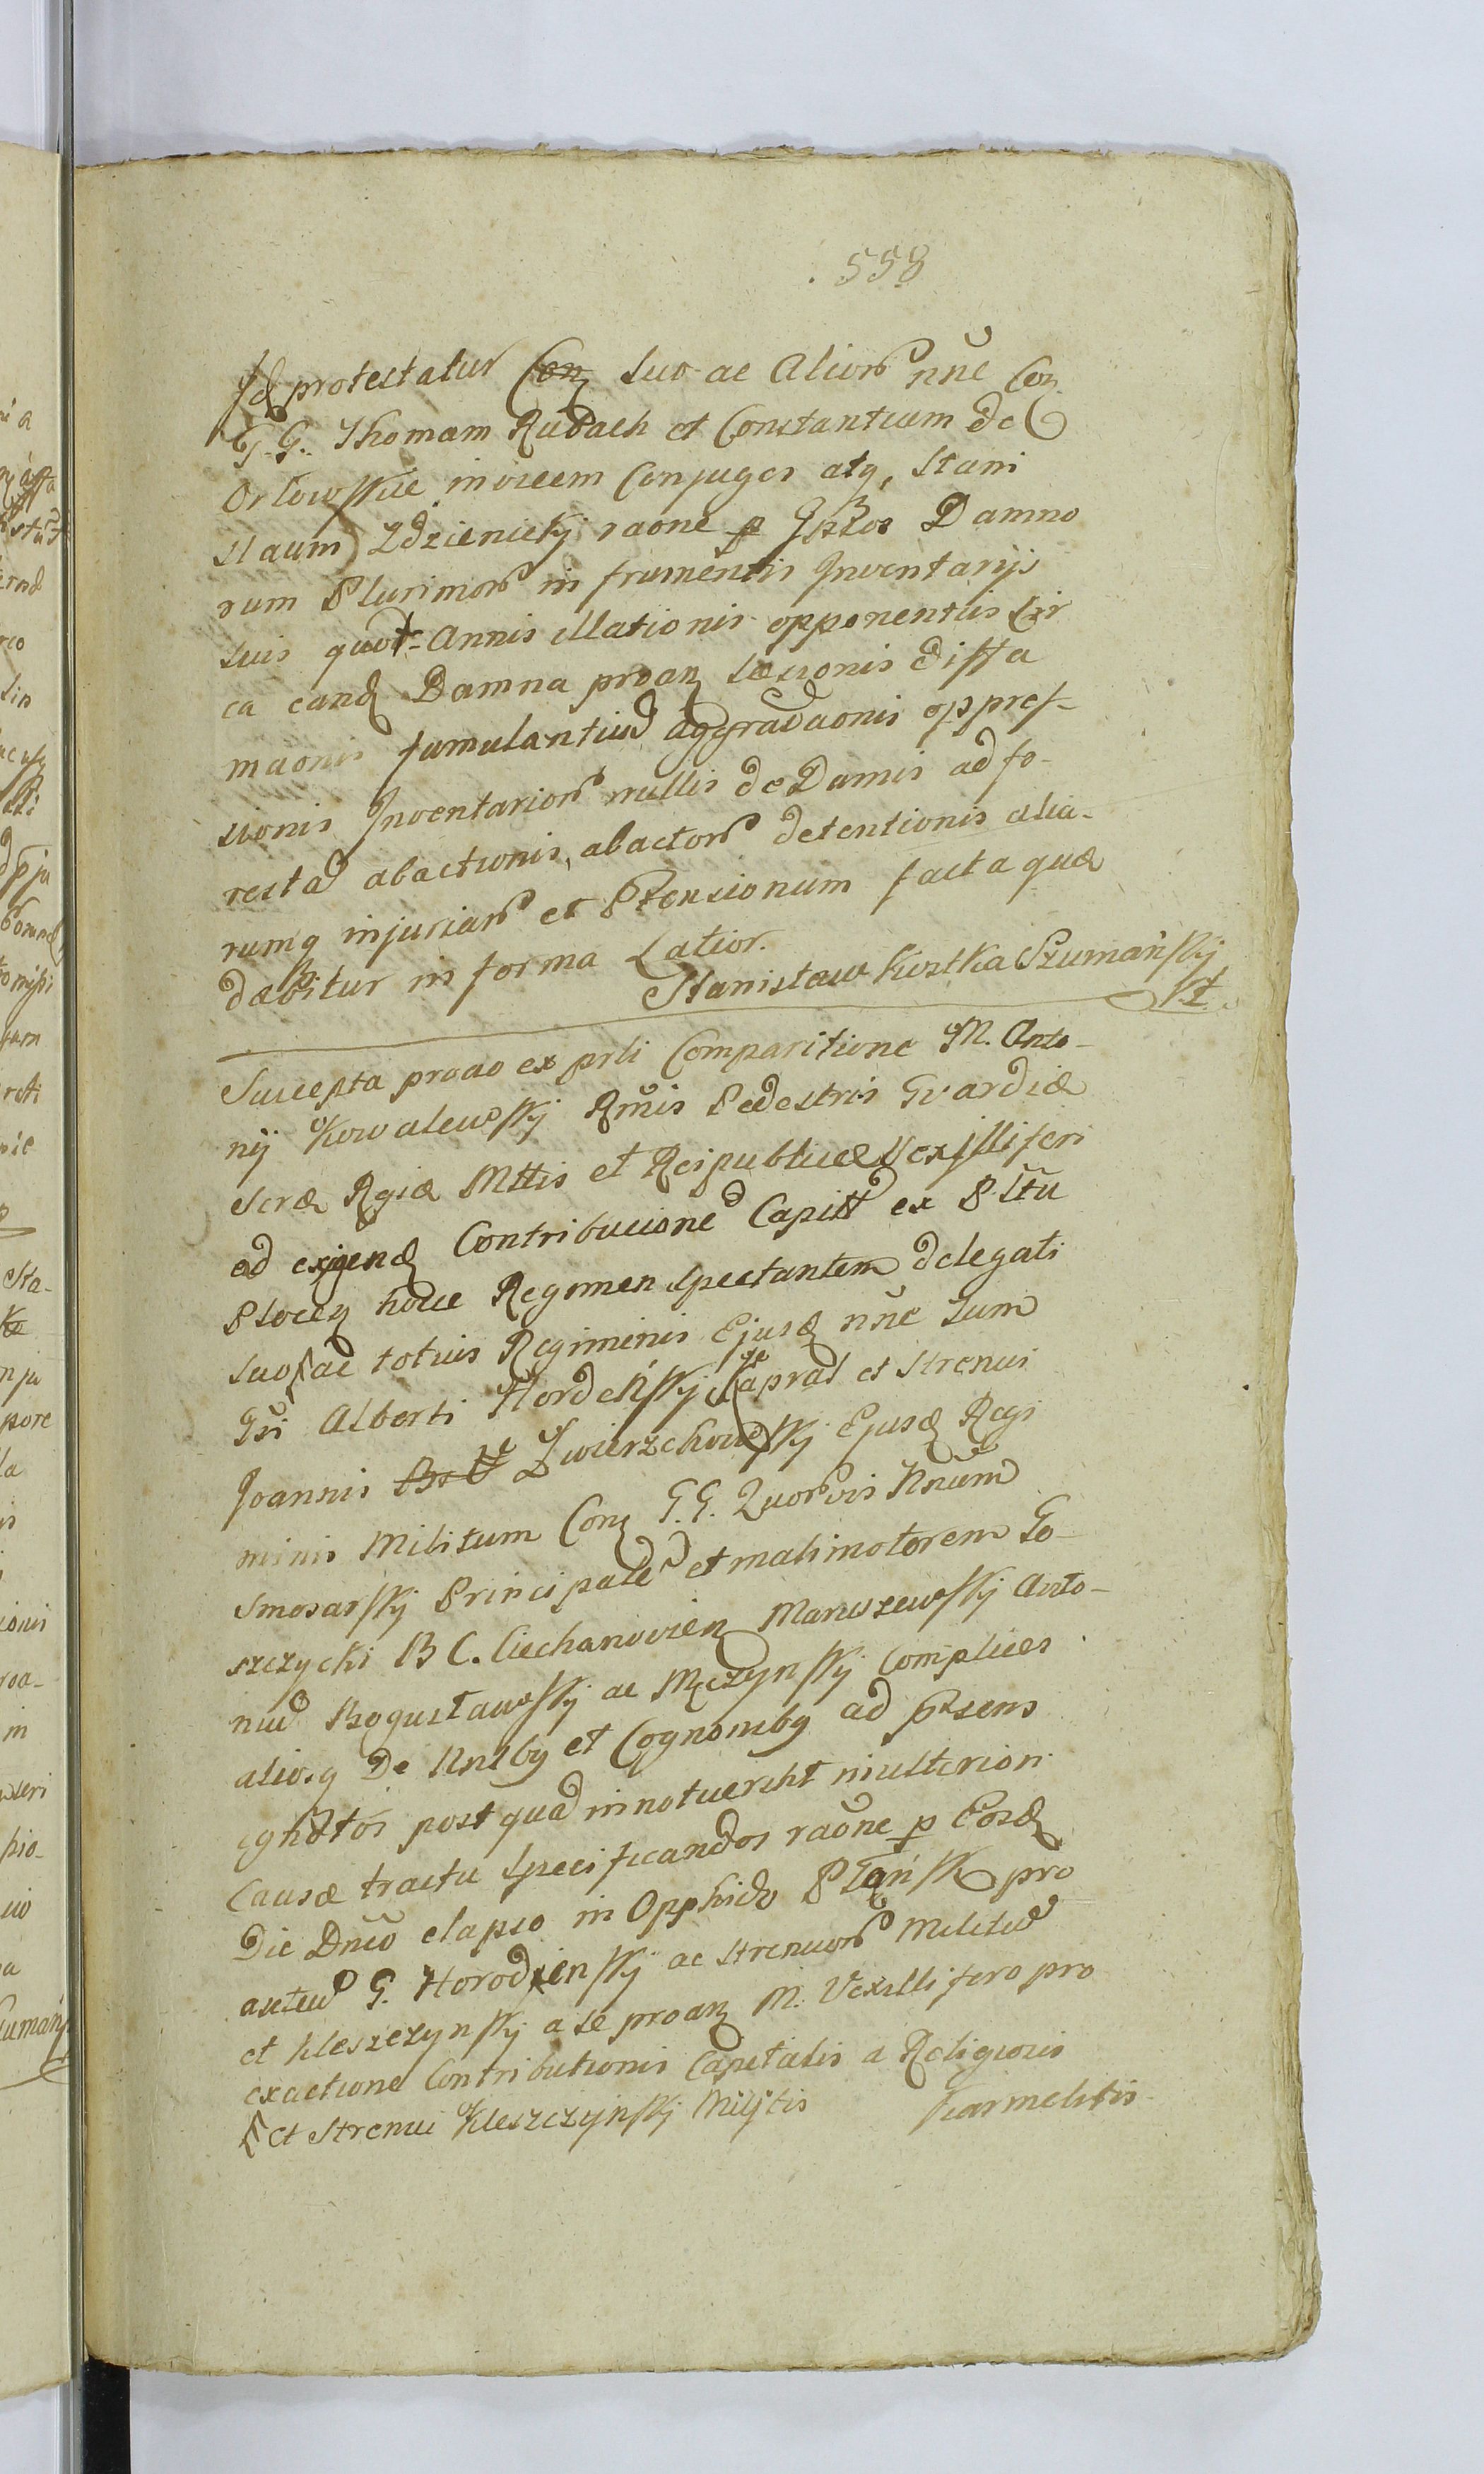 558
Id protestatur Con suo ac Alior nne Con
G. G. Thomam Rudach et Constantiam de
Orłowskie invicem Conjuges atq, Stani
slaum Zdzienickij raone p Ipsos Damno
rum Plurimor in frumentis Inventarijs
suis quot-Annis illationis opponentiis Cir
ca eand Damna proan Laesionis diffa
maonis famulantiu aggravaonis oppres-
sionis Inventarior nullis de Damis ad fo-
resta abactionis, abactor detentionis alia-
rumq injuriar et Ptensionum facta quae
dabitur in forma Latior.
Stanisław Kostka Szumański
Suscepta proao ex prli Comparitione M. Anto-
nij Kowalewskij Rmis Pedestris Gvardiae
Scrae Rgiae Mttis et Reipublicae Vexilliferi
ad exigend Contribucione Capitt ex Pttu
Plocen hocce Regimen spectantem delegati
suo ac totius Regiminis Ejusd nne tum
Gsi Alberti Hordeńskij Kapral et Strenui
Joannis Zwierzchowskij Ejusd Regi
minis Militum Con G. G. Quorvis Nnum
Smosarskij Principale et malimotorem Go
szczycki B C. Ciechanovien Maruszewskij Anto-
niu Bogusławskij ac Męczynskij Complices
aliosq De Nnibq et Cognombq ad psens
ignotos postqua innotuerint in ulteriori
Causae tractu specificandos raone p Eosd
Die Dnico elapso in Oppido Płońsk pro
autu G. Horodzienskij ac Strenuor Militu
et Kleszczynskij a se proan M. Vexillifero pro
exactione Contributionis Capitalis a Religiosis
et Strenui Kleszczynskij Militis Karmelitis